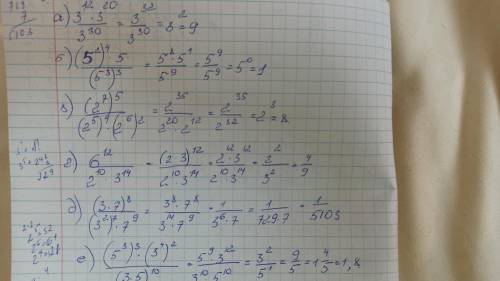 729
7
5103
а) 3^12 · 3^20 / 3^30 = 3^32 / 3^30 = 3^2 = 9
б) (5^2)^4 · 5 / (5^3)^3 = 5^8 · 5^1 / 5^9 = 5^9 / 5^9 = 5^0 = 1
в) (2^7)^5 / (2^5)^4 (2^6)^2 = 2^35 / 2^20 · 2^12 = 2^35 / 2^32 = 2^3 = 8
г) 6^12 / 2^10 · 3^14 = (2·3)^12 / 2^10 · 3^14 = 2^12 · 3^12 / 2^10 · 3^14 = 2^2 / 3^2 = 4/9
д) (3·7)^8 / (3^2)^7 · 7^9 = 3^8 · 7^8 / 3^14 · 7^9 = 1 / 3^6 · 7 = 1 / 729·7 = 1 / 5103
е) (5^3)^3 · (3^4)^2 / (3·5)^10 = 5^9 · 3^12 / 3^10 · 5^10 = 3^2 / 5^1 = 9/5 = 1 4/5 = 1,8